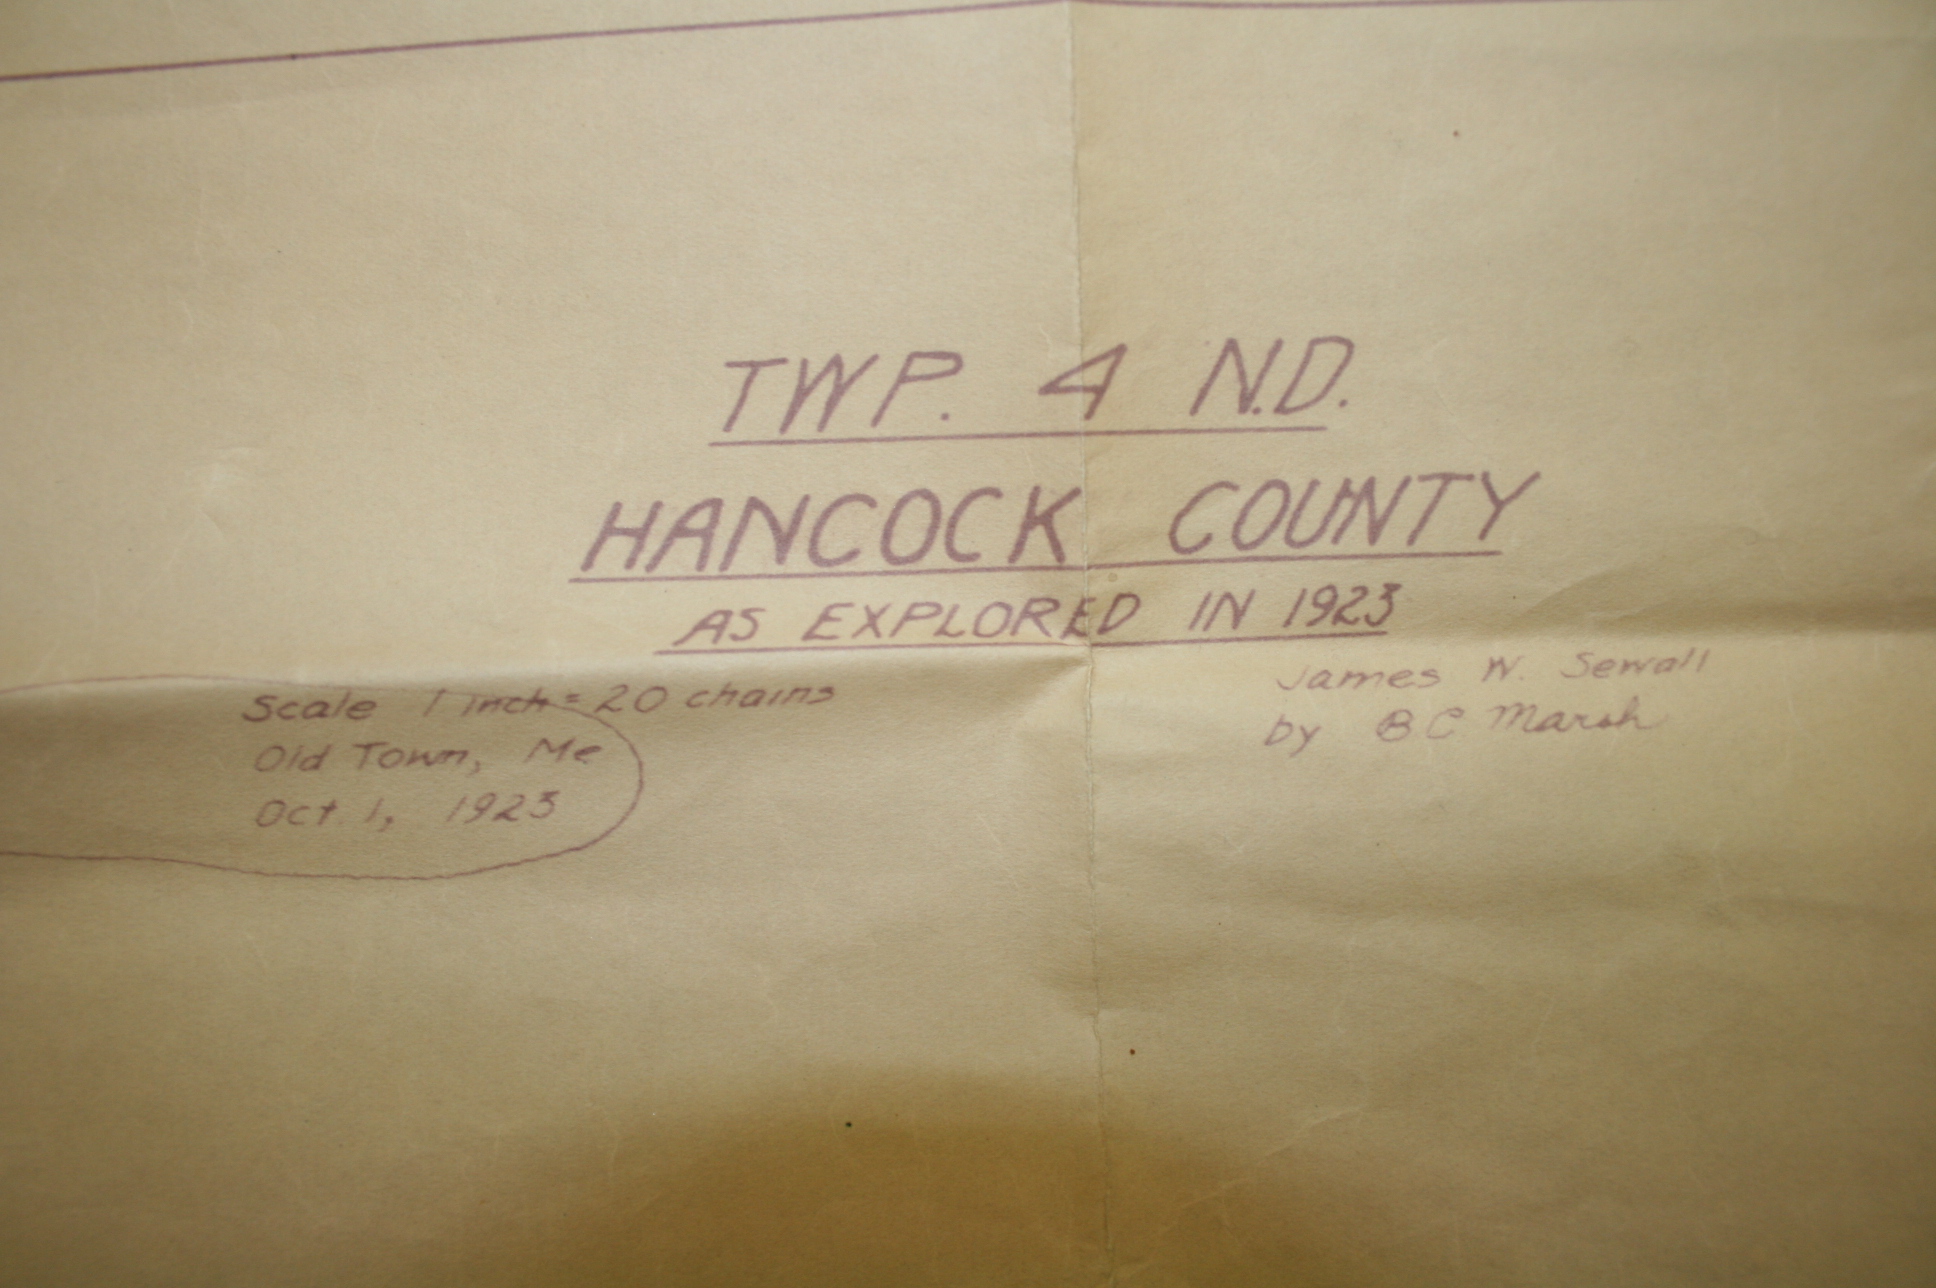 TWP. 4 N.D.
HANCOCK COUNTY
AS EXPLORED IN 1923
Scale 1 inch = 20 chains
Old Town, Me
Oct 1, 1923
James W. Sewall
by B C Marsh